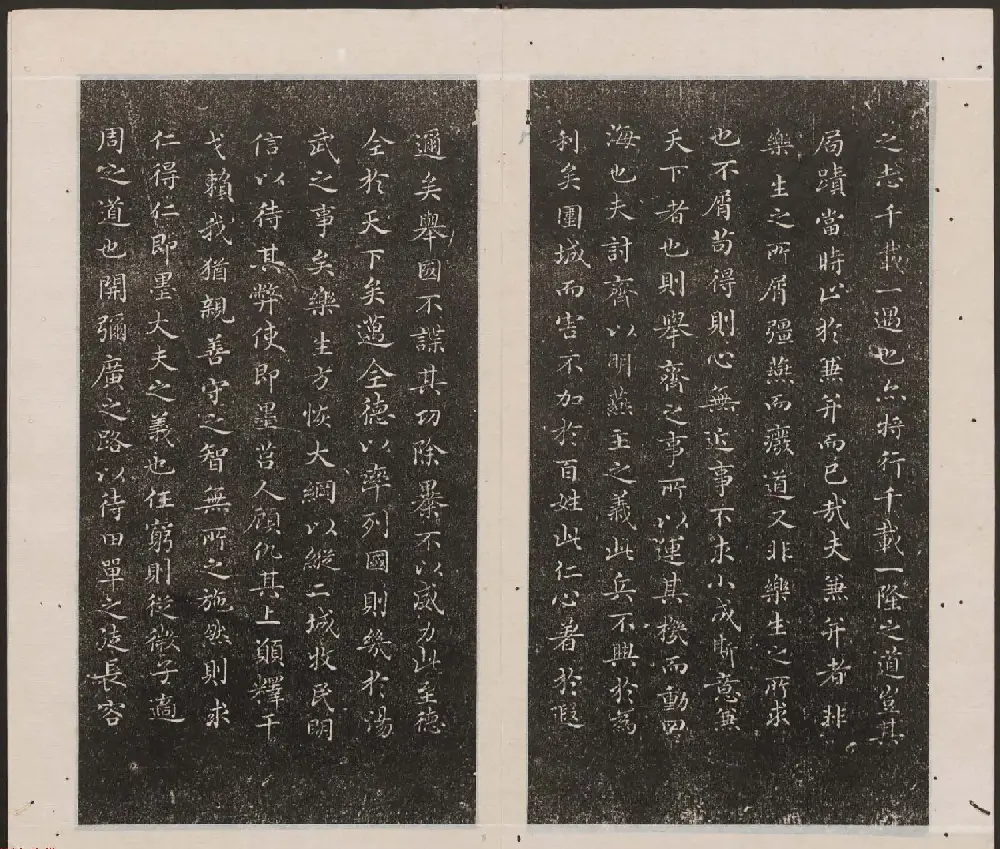 之志千載一遇也亦將行千載一隆之道豈其
局蹟當時止於兼并而已哉夫兼并者非
樂生之所屑彊燕而癈道又非樂生之所求
也不屑苟得則心無近事不求小成斯意兼
天下者也則舉齊之事所以運其機而動四
海也夫討齊以明燕主之義此兵不興於為
利矣圍城而害不加於百姓此仁心著於遐
邇矣舉國不謀其功除暴不以威力此至德
全於天下矣邁全德以率列國則幾於湯
武之事矣樂生方恢大綱以縱二城牧民明
信以待其弊使即墨莒人顧仇其上願釋干
戈賴我猶親善守之智無所之施然則求
仁得仁即墨大夫之義也任窮則從微子適
周之道也開彌廣之路以待田單之徒長容